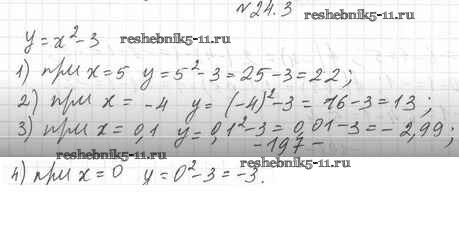 №24.3 reshebnik5-11.ru
y=x²-3 reshebnik5-11.ru
1) при x=5 y=5²-3=25-3=22;
2) при x= -4 y= (-4)²-3= 16-3=13;
3) при x=0,1 y=0,1²-3=0,01-3=-2,99;
-197-
reshebnik5-11.ru reshebnik5-11.ru
4) при x=0 y=0²-3=-3.